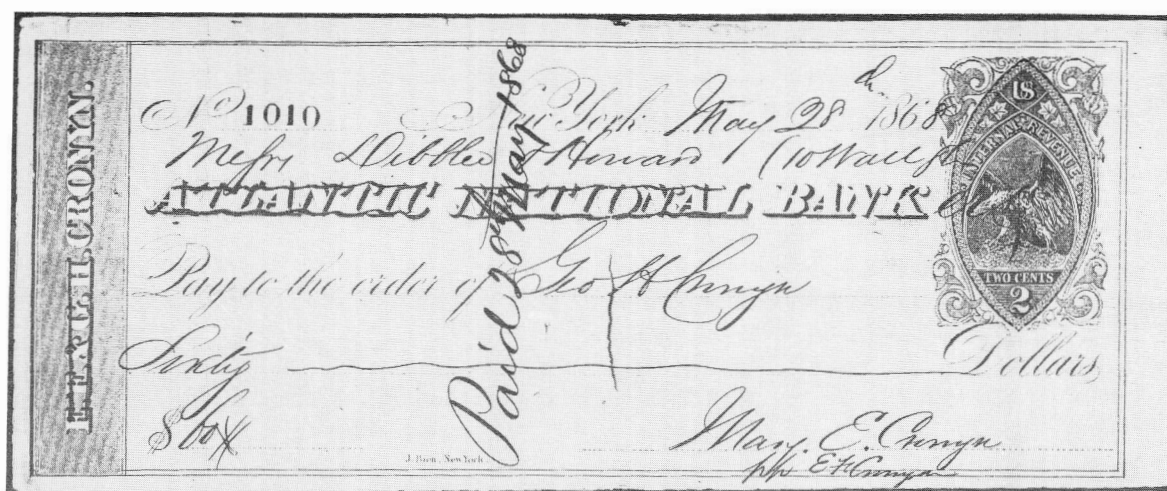 E. F. & G. H. CRONYN.
No 1010 New York May 28 th. 1868
Messrs Dibblee & Howard (10 Wall St
ATLANTIC NATIONAL BANK
Pay to the order of Geo H Cronyn
Sixty Dollars
$ 60
Mary E. Cronyn
pp. E F Cronyn
J. Bien, New York.
Paid 28th May 1868
US
INTERNAL REVENUE
TWO CENTS
2